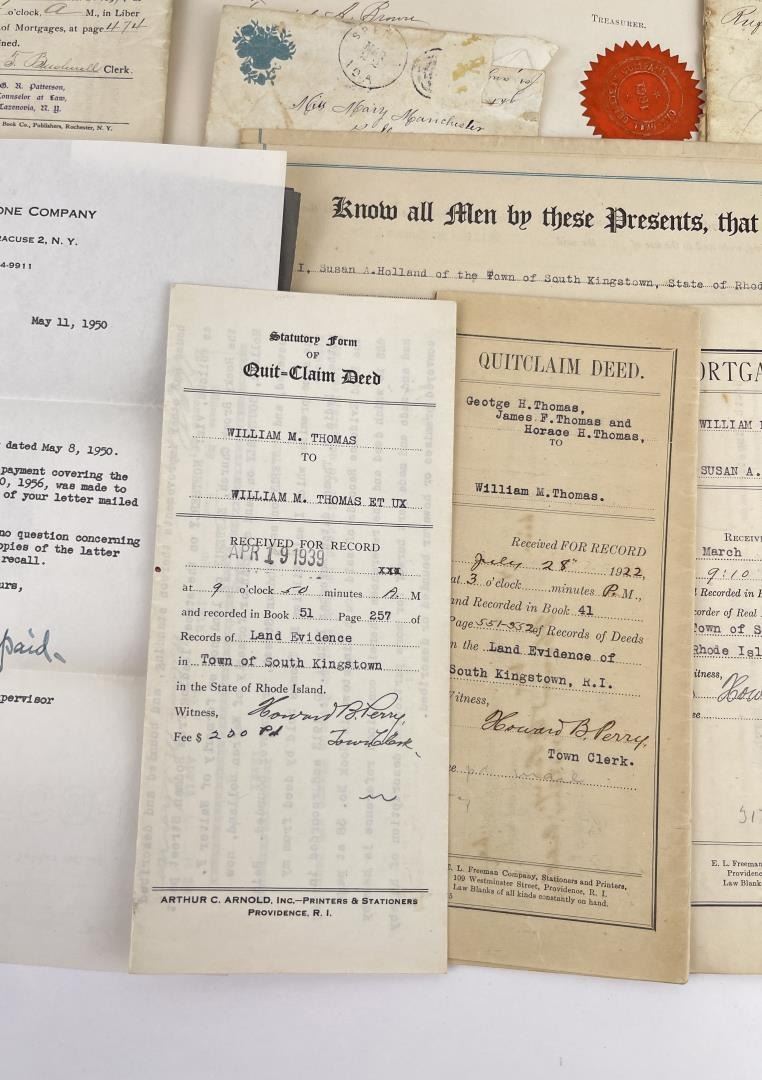 o'clock, A M., in Liber
of Mortgages, at page 474
ined.
Clerk.
G. R. Patterson,
ounselor at Law,
azenovia, N. Y.
Book Co., Publishers, Rochester, N. Y.
Brown
TREASURER.
Miss Mary Manchester
Know all Men by these Presents, that
I, Susan A.Holland of the Town of South Kingstown, State of Rhod
ONE COMPANY
RACUSE 2, N. Y.
4-9911
May 11, 1950
dated May 8, 1950.
payment covering the
0, 1956, was made to
of your letter mailed
no question concerning
opies of the latter
recall.
urs,
paid
pervisor
Statutory Form
OF
Quit=Claim Deed
WILLIAM M. THOMAS
TO
WILLIAM M. THOMAS ET UX
RECEIVED FOR RECORD
APR 19 1939
xxx
at 9 o'clock 50 minutes A. M
and recorded in Book 51 Page 257 of
Records of Land Evidence
in Town of South Kingstown
in the State of Rhode Island.
Witness, Howard B. Perry,
Fee $ 2.00 Pd Town Clerk.
ARTHUR C. ARNOLD, INC.—PRINTERS & STATIONERS
PROVIDENCE, R. I.
QUITCLAIM DEED.
Geotge H.Thomas,
James F.Thomas and
Horace H.Thomas,
TO
William M.Thomas.
Received FOR RECORD
July 28" 1922,
at 3 o'clock minutes P. M.,
and Recorded in Book 41
Page 551-552 of Records of Deeds
n the Land Evidence of
South Kingstown, R.I.
Witness,
Howard B. Perry,
Town Clerk.
E. L. Freeman Company, Stationers and Printers,
109 Westminster Street, Providence, R. I.
Law Blanks of all kinds constantly on hand.
ORTGA
WILLIAM
SUSAN A.
RECEIV
March
9:10
Recorded in B
corder of Real
Town of S
Rhode Isl
itness,
How
E. L. Freeman
Providenc
Law Blank